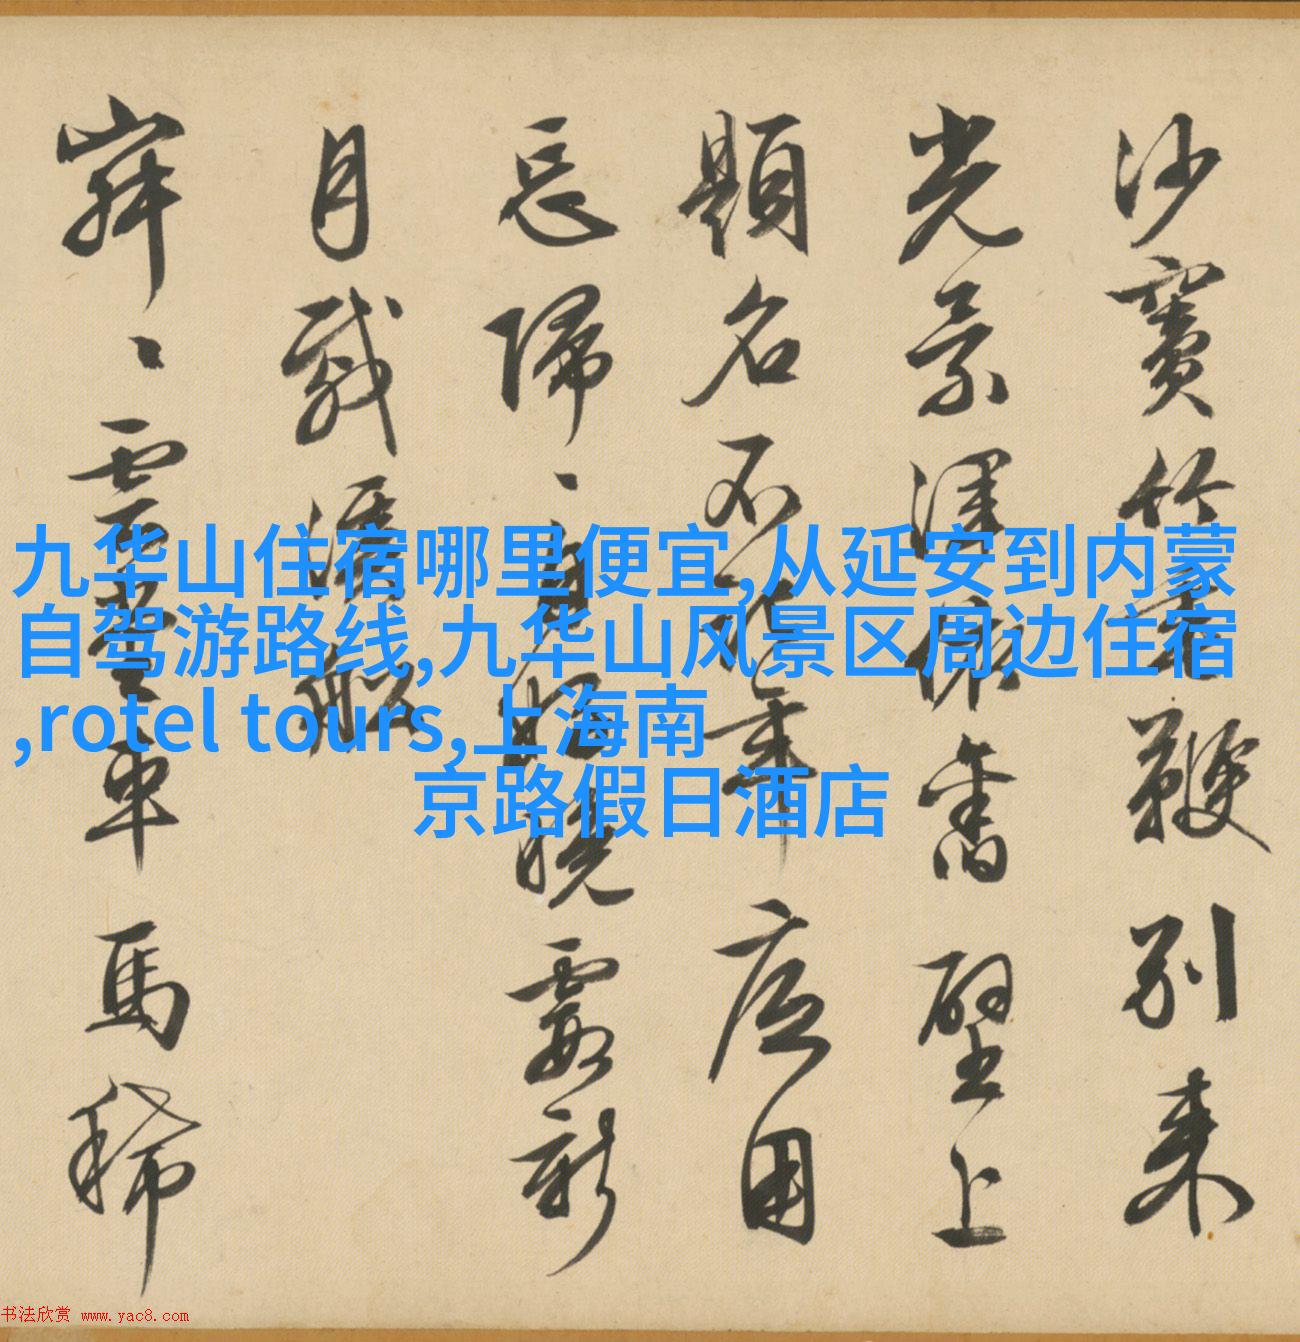 九华山住宿哪里便宜,从延安到内蒙
自驾游路线,九华山风景区周边住宿
,rotel tours,上海南
京路假日酒店
沙寶竹鞭别来
光景渾依舊壁上
題名不年應用
忘歸新
月
雲堂車馬稀
书法欣赏 www.yac8.com